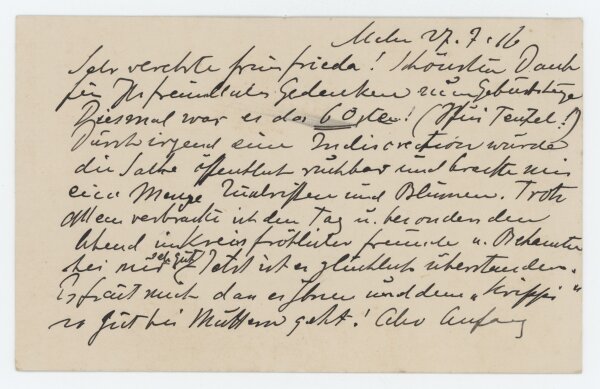 27.7.16
Sehr verehrte frau frieda! Schönsten Dank
für Ihr freundliches Gedenken zum Geburtstage
Diesmal war es das 60ste! (Pfui Teufel!)
Durch irgend eine Indiscretion wurde
die Sache öffentlich ruchbar und brachte mir
eine Menge Zuschriften und Blumen. Trotz
allem verbrachte ich den Tag u. besonders den
Abend im Kreis fröhlicher freunde u. Bekannter
bei mir sehr gut. Jetzt ist es glücklich überstanden.
Es freut mich dass es Ihnen und dem „
so gut bei Muttern geht! Also Anfang